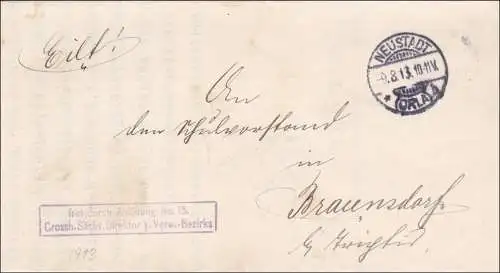 Eilt!
NEUSTADT
9.8.13. 10-11V.
(ORLA)
An
den Schulvorstand
in
Braunsdorf
b/
frei durch Ablösung No. 15.
Grossh. Sächs. Direktor d. Verw.-Bezirks
1913